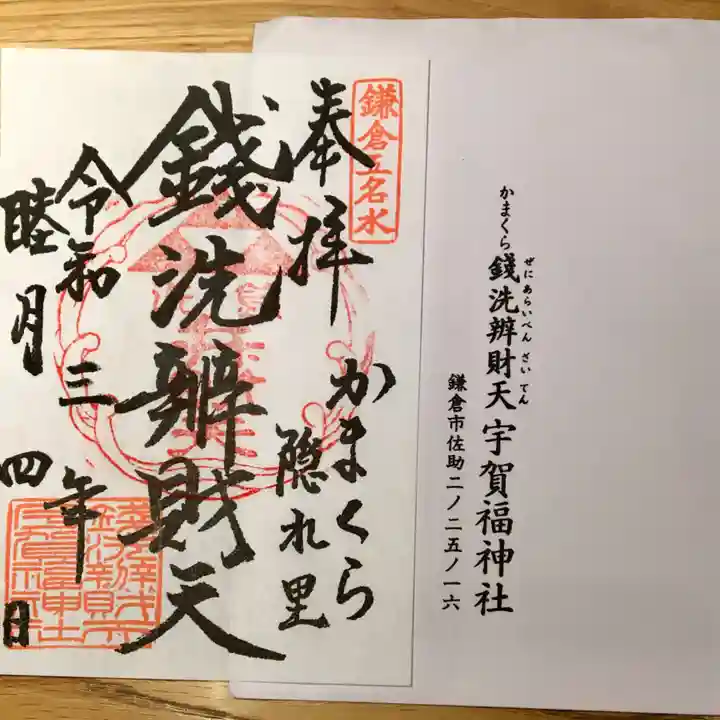 鎌倉五名水
奉拝
かまくら
隠れ里
銭洗辧財天
令和三年
睦月四日
かまくら
銭洗辨財天宇賀福神社
ぜにあらいべんざいてん
鎌倉市佐助二ノ二五ノ一六